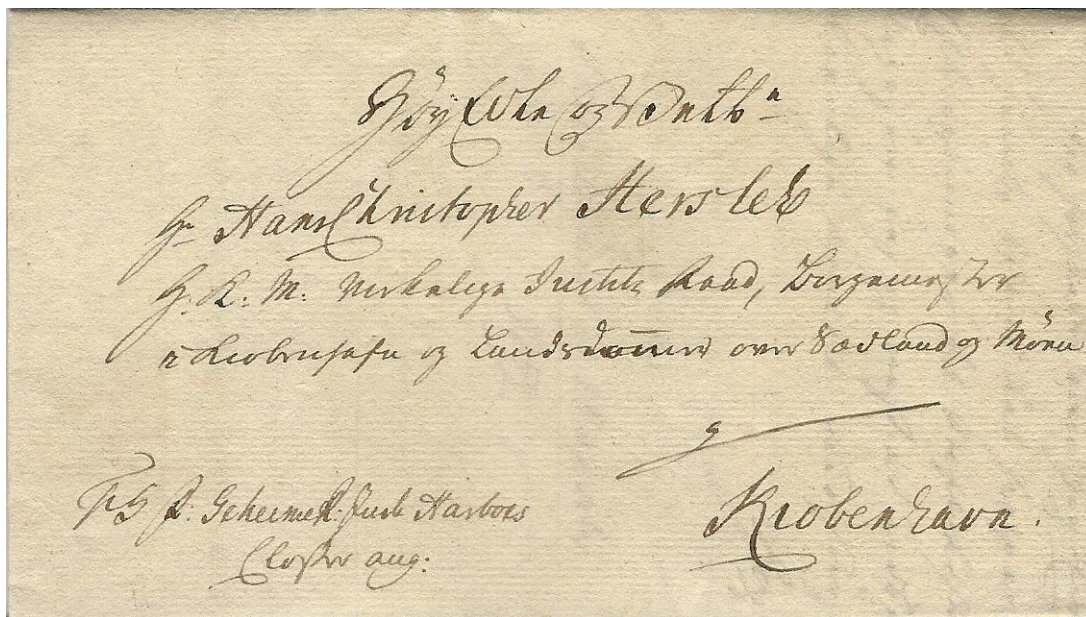 Høy Edle og Velb:n
Hr Hans Christopher Hersleb
H: K: M: Virkelige Justitz Raad, Borgemester
i Kiøbenhafn og Landsdommer over Sædland og Møen
Kiøbenhavn.
Geheime R: Juel Harboes
Closter ang: